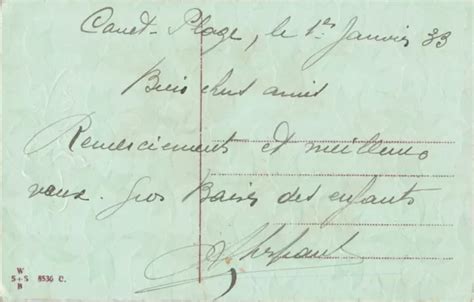 Canet-Plage, le 1er Janvier 33
Bien chers amis
Remerciements et meilleurs
vœux. Gros Baisers des enfants
W
S+S 8536 C.
B